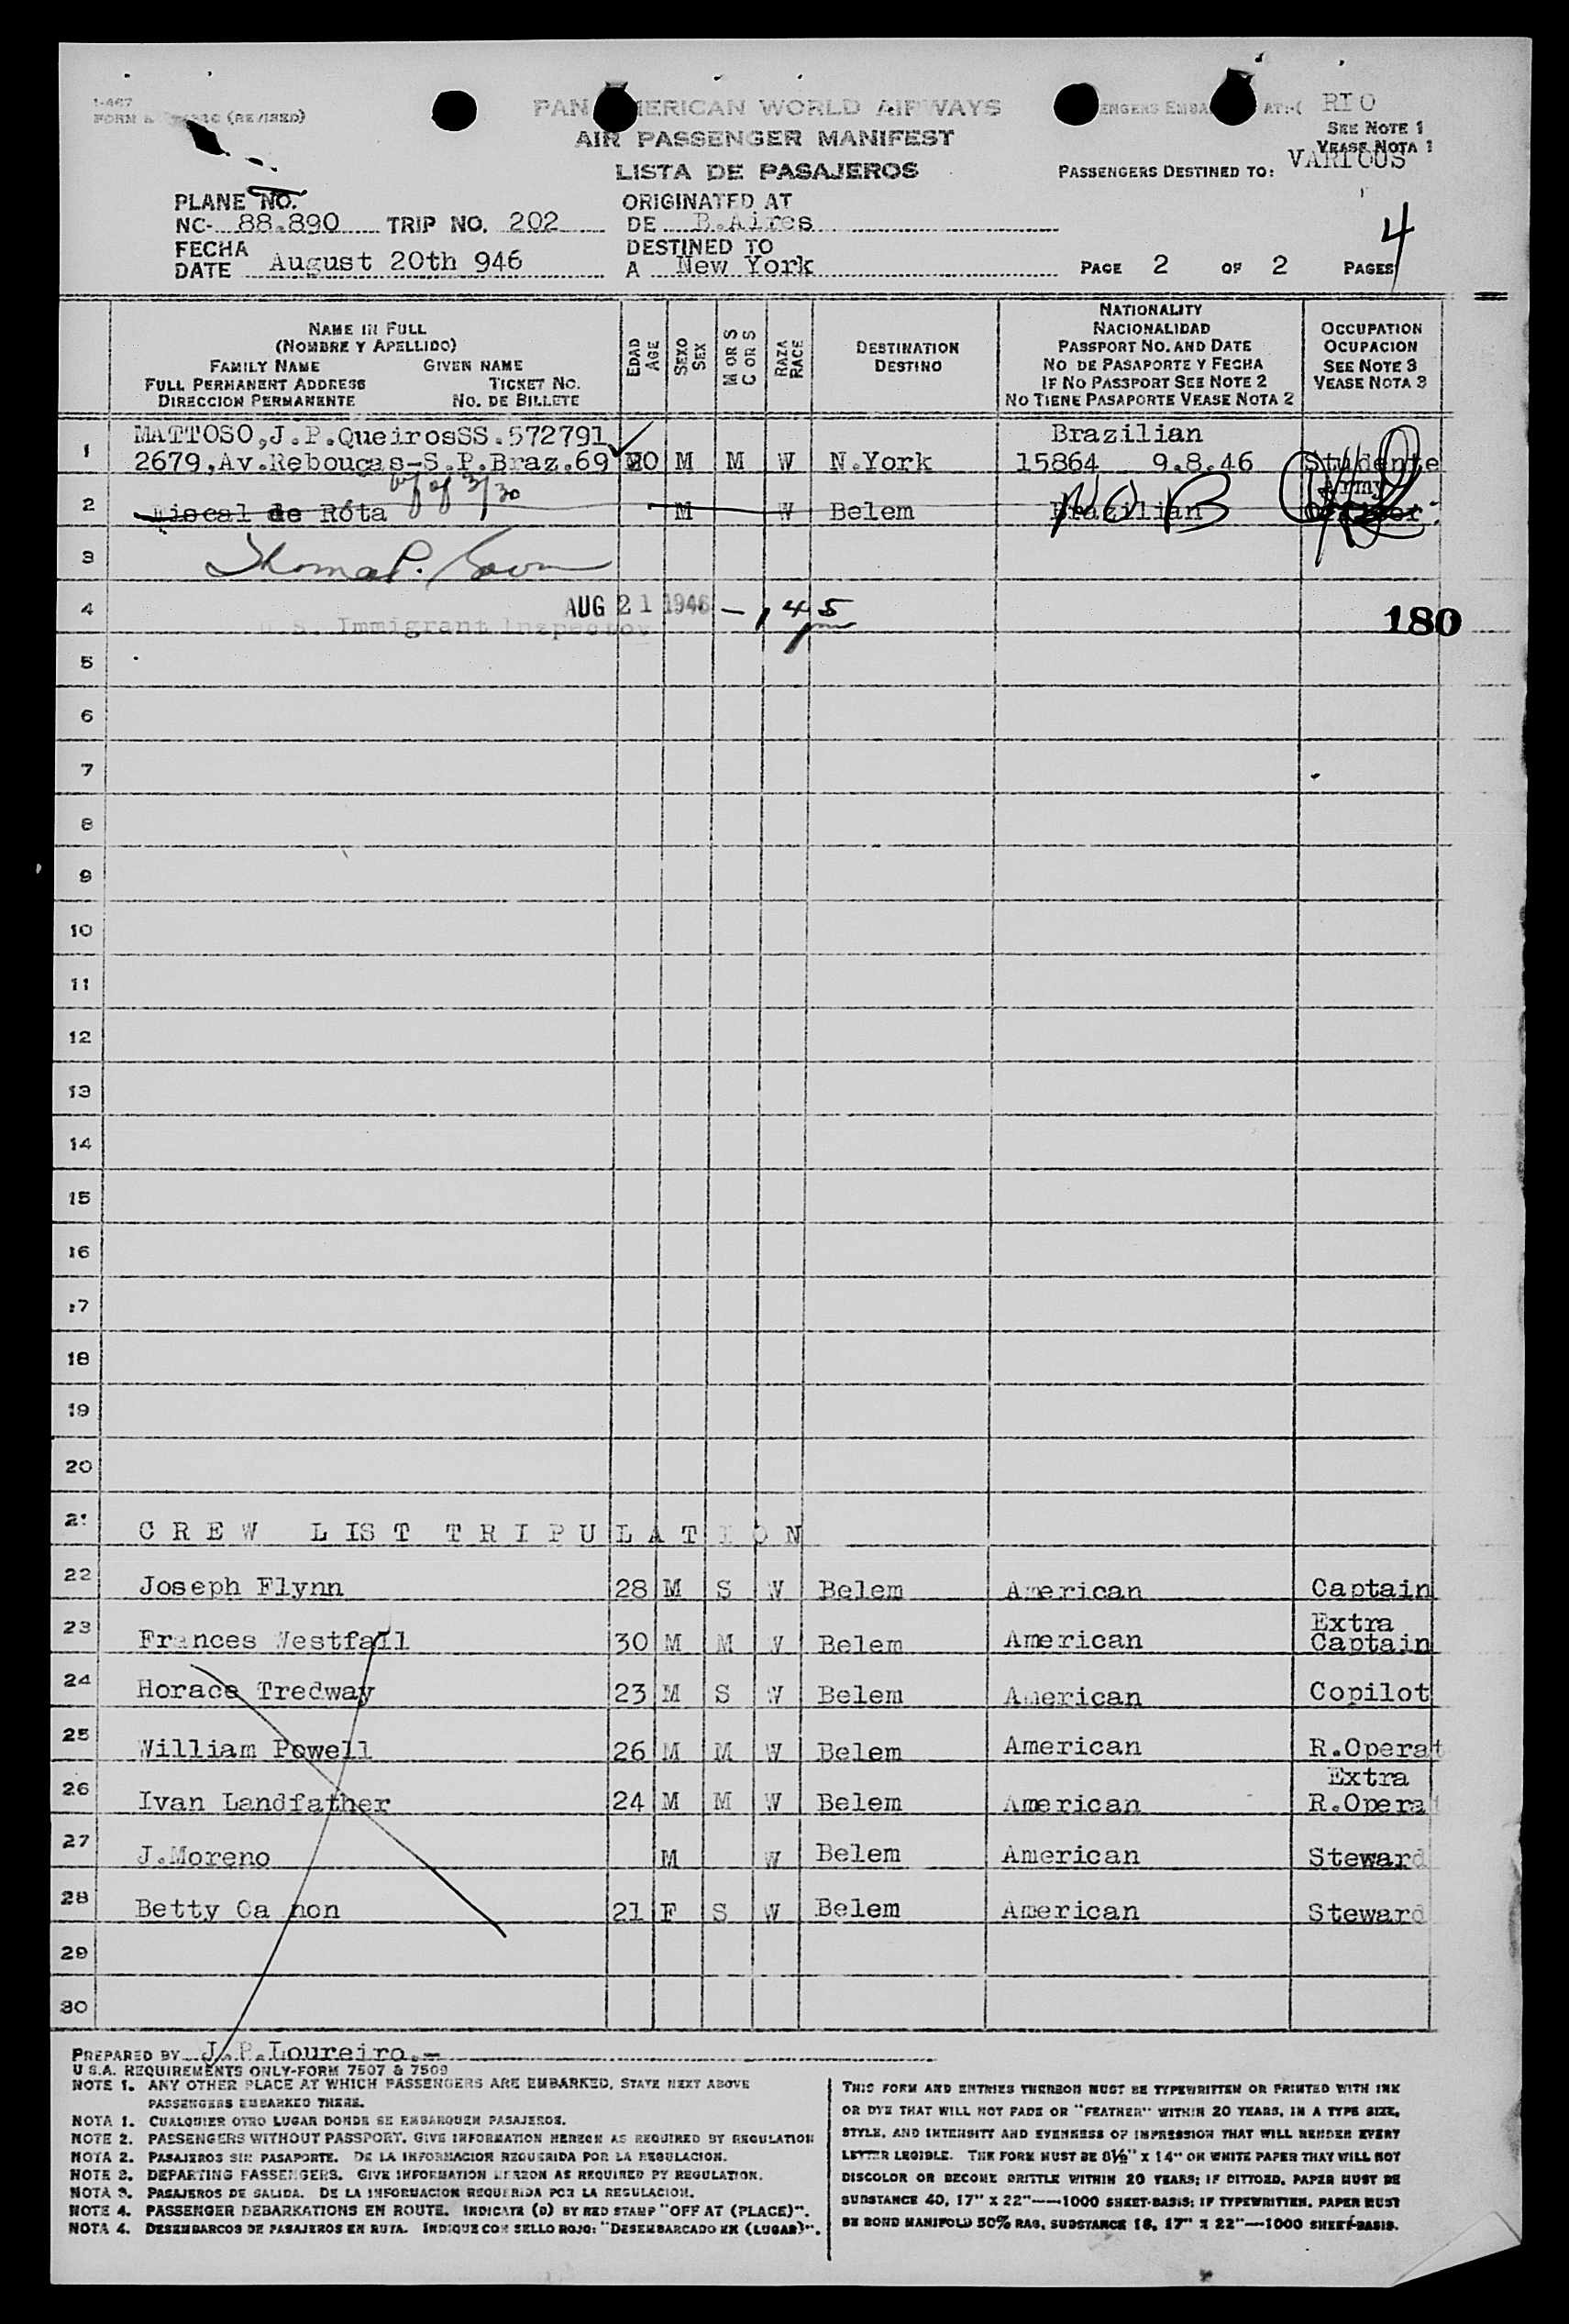 I-467
FORM (REVISED)
PAN AMERICAN WORLD AIRWAYS
AIR PASSENGER MANIFEST
LISTA DE PASAJEROS
AT:-( RIO
SEE NOTE 1
VEASE NOTA 1
PASSENGERS DESTINED TO: VARIOUS
PLANE NO.
NC- 88.890 TRIP NO. 202
FECHA
DATE August 20th 946
ORIGINATED AT
DE B.Aires
DESTINED TO
A New York
4
PAGE 2 OF 2 PAGES
NAME IN FULL
(NOMBRE Y APELLIDO)
FAMILY NAME GIVEN NAME
FULL PERMANENT ADDRESS TICKET NO.
DIRECCION PERMANENTE NO. DE BILLETE
EDAD
AGE
SEXO
SEX
M OR S
C OR S
RAZA
RACE
DESTINATION
DESTINO
NATIONALITY
NACIONALIDAD
PASSPORT NO. AND DATE
NO DE PASAPORTE Y FECHA
IF NO PASSPORT SEE NOTE 2
NO TIENE PASAPORTE VEASE NOTA 2
OCCUPATION
OCUPACION
SEE NOTE 3
VEASE NOTA 3
MATTOSO,J.P.QueirosSS.572791 Brazilian
1 2679,Av.Rebouças-S.P.Braz.69 20 M M W N.York 15864 9.8.46 Studente
Army
2 Fiscal de Róta M W Belem Brazilian NOB
3
4 AUG 21 1946 - 1 45 pm 180
U.S. Immigrant Inspector
5
6
7
8
9
10
11
12
13
14
15
16
17
18
19
20
21 CREW LIST TRIPULATION
22 Joseph Flynn 28 M S W Belem American Captain
Extra
23 Frances Westfall 30 M M W Belem American Captain
24 Horace Tredway 23 M S W Belem American Copilot
25 William Powell 26 M M W Belem American R.Operat
Extra
26 Ivan Landfather 24 M M W Belem American R.Opera
27 J.Moreno M W Belem American Steward
28 Betty Ca non 21 F S W Belem American Steward
29
30
PREPARED BY J.P.Loureiro.-
U S.A. REQUIREMENTS ONLY-FORM 7507 & 7509
NOTE 1. ANY OTHER PLACE AT WHICH PASSENGERS ARE EMBARKED, STATE NEXT ABOVE
PASSENGERS EMBARKED THERE.
NOTA 1. CUALQUIER OTRO LUGAR DONDE SE EMBARQUEN PASAJEROS.
NOTE 2. PASSENGERS WITHOUT PASSPORT. GIVE INFORMATION HEREON AS REQUIRED BY REGULATION
NOTA 2. PASAJEROS SIN PASAPORTE. DE LA INFORMACION REQUERIDA POR LA REGULACION.
NOTE 3. DEPARTING PASSENGERS. GIVE INFORMATION HEREON AS REQUIRED BY REGULATION.
NOTA 3. PASAJEROS DE SALIDA. DE LA INFORMACION REQUERIDA POR LA REGULACION.
NOTE 4. PASSENGER DEBARKATIONS EN ROUTE. INDICATE (D) BY RED STAMP "OFF AT (PLACE)".
NOTA 4. DESEMBARCOS DE PASAJEROS EN RUTA. INDIQUE CON SELLO ROJO: "DESEMBARCADO EN (LUGAR)".
THIS FORM AND ENTRIES THEREON MUST BE TYPEWRITTEN OR PRINTED WITH INK
OR DYE THAT WILL NOT FADE OR "FEATHER" WITHIN 20 YEARS, IN A TYPE SIZE,
STYLE, AND INTENSITY AND EVENNESS OF IMPRESSION THAT WILL RENDER EVERY
LETTER LEGIBLE. THE FORM MUST BE 8½" X 14" ON WHITE PAPER THAT WILL NOT
DISCOLOR OR BECOME BRITTLE WITHIN 20 YEARS; IF DITTOED, PAPER MUST BE
SUBSTANCE 40, 17" X 22"——1000 SHEET-BASIS; IF TYPEWRITTEN, PAPER MUST
BE BOND MANIFOLD 50% RAG, SUBSTANCE 16, 17" X 22"—1000 SHEET-BASIS.